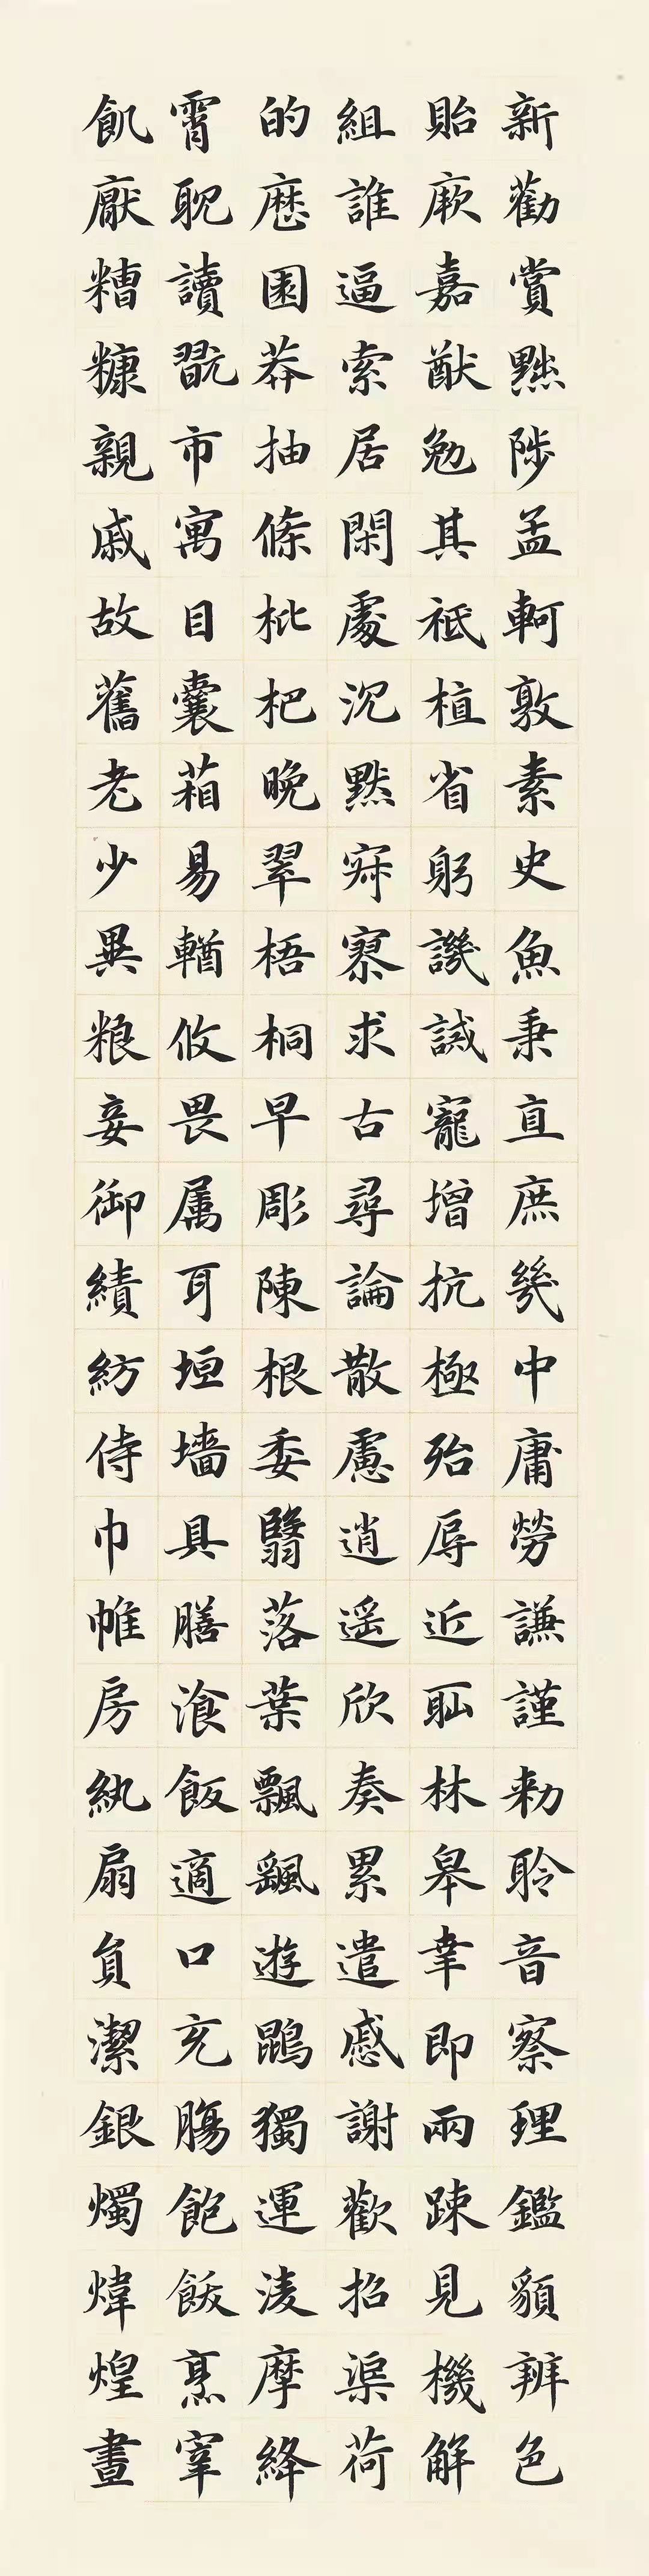 新勸賞黜陟孟軻敦素史魚秉直庶幾中庸勞謙謹勑聆音察理鑑貌辨色
貽厥嘉猷勉其祗植省躬譏誡寵增抗極殆辱近恥林皋幸即兩疎見機解
組誰逼索居閑處沉默寂寥求古尋論散慮逍遥欣奏累遣慼謝歡招渠荷
的歷園莽抽條枇杷晚翠梧桐早彫陳根委翳落葉飄颻遊鵾獨運凌摩絳
霄耽讀翫市寓目囊箱易輶攸畏属耳垣墙具膳飡飯適口充腸飽飫烹宰
飢厭糟糠親戚故舊老少異粮妾御績紡侍巾帷房紈扇員潔銀燭煒煌晝